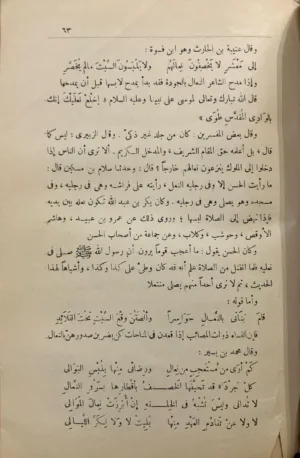 ٦٣
وقال عتيبة بن الحارث وهو ابن فسوة :
إلى معشر لا يخصفون نعالهم ولا يلبسون السبت مالم يخصر
وإذا مدح الشاعر النعال بالجودة فقد بدأ بمدح لابسها قبل أن يمدحها
قال الله تبارك وتعالى لموسى على نبينا وعليه السلام « إخلع نعليك إنك
بالوادى المقدس طوى »
وقال بعض المفسرين : كان من جلد غير ذكى . وقال الزبيرى : ليس كما
قال ، بل أعلمه حق المقام الشريف ، والمدخل الكريم . ألا ترى أن الناس إذا
دخلوا إلى الملوك ينزعون نعالهم خارجاً ؟ قال : وحدثنا سلام بن مسكين قال :
ما رأيت الحسن إلا وفى رجليه النعل ، رأيته على فراشه وهى فى رجليه ، وفى
مسجده وهو يصلى وهى فى رجليه . وكان بكر بن عبد الله تكون نعله بين يديه
فإذا نهض إلى الصلاة لبسها ؛ وروى ذلك عن عمرو بن عبيد ، وهاشم
الأوقص ، وحوشب ، وكلاب ، وعن جماعة من أصحاب الحسن
وكان الحسن يقول : ما أعجب قوماً يرون أن رسول الله ﷺ صلى فى
نعليه فلما انفتل من الصلاة علم أنه قد كان وطئ على كذا وكذا ، وأشباهاً لهذا
الحديث ، ثم لا ترى أحداً منهم يصلى منتعلا
وأما قوله :
قام بناتى بالنعال حواسراً وألصقن وقع السبت تحت القلائد
فإن النساء ذوات المصائب إذا قمن فى المناحات كن يضربن صدورهن بالنعال.
وقال محمد بن يسير :
كم أرى من مستعجب من نعالى ورضائى منها بلبس البوالى
كل جرداء قد تحيفها الخصف بأقطارها بسرد النعال
لا تدانى وليس تشبه فى الخلقة إن أبرزت نعال الموالى
لا ولا عن تقادم العهد منها بليت لا ولا لكر الليالى